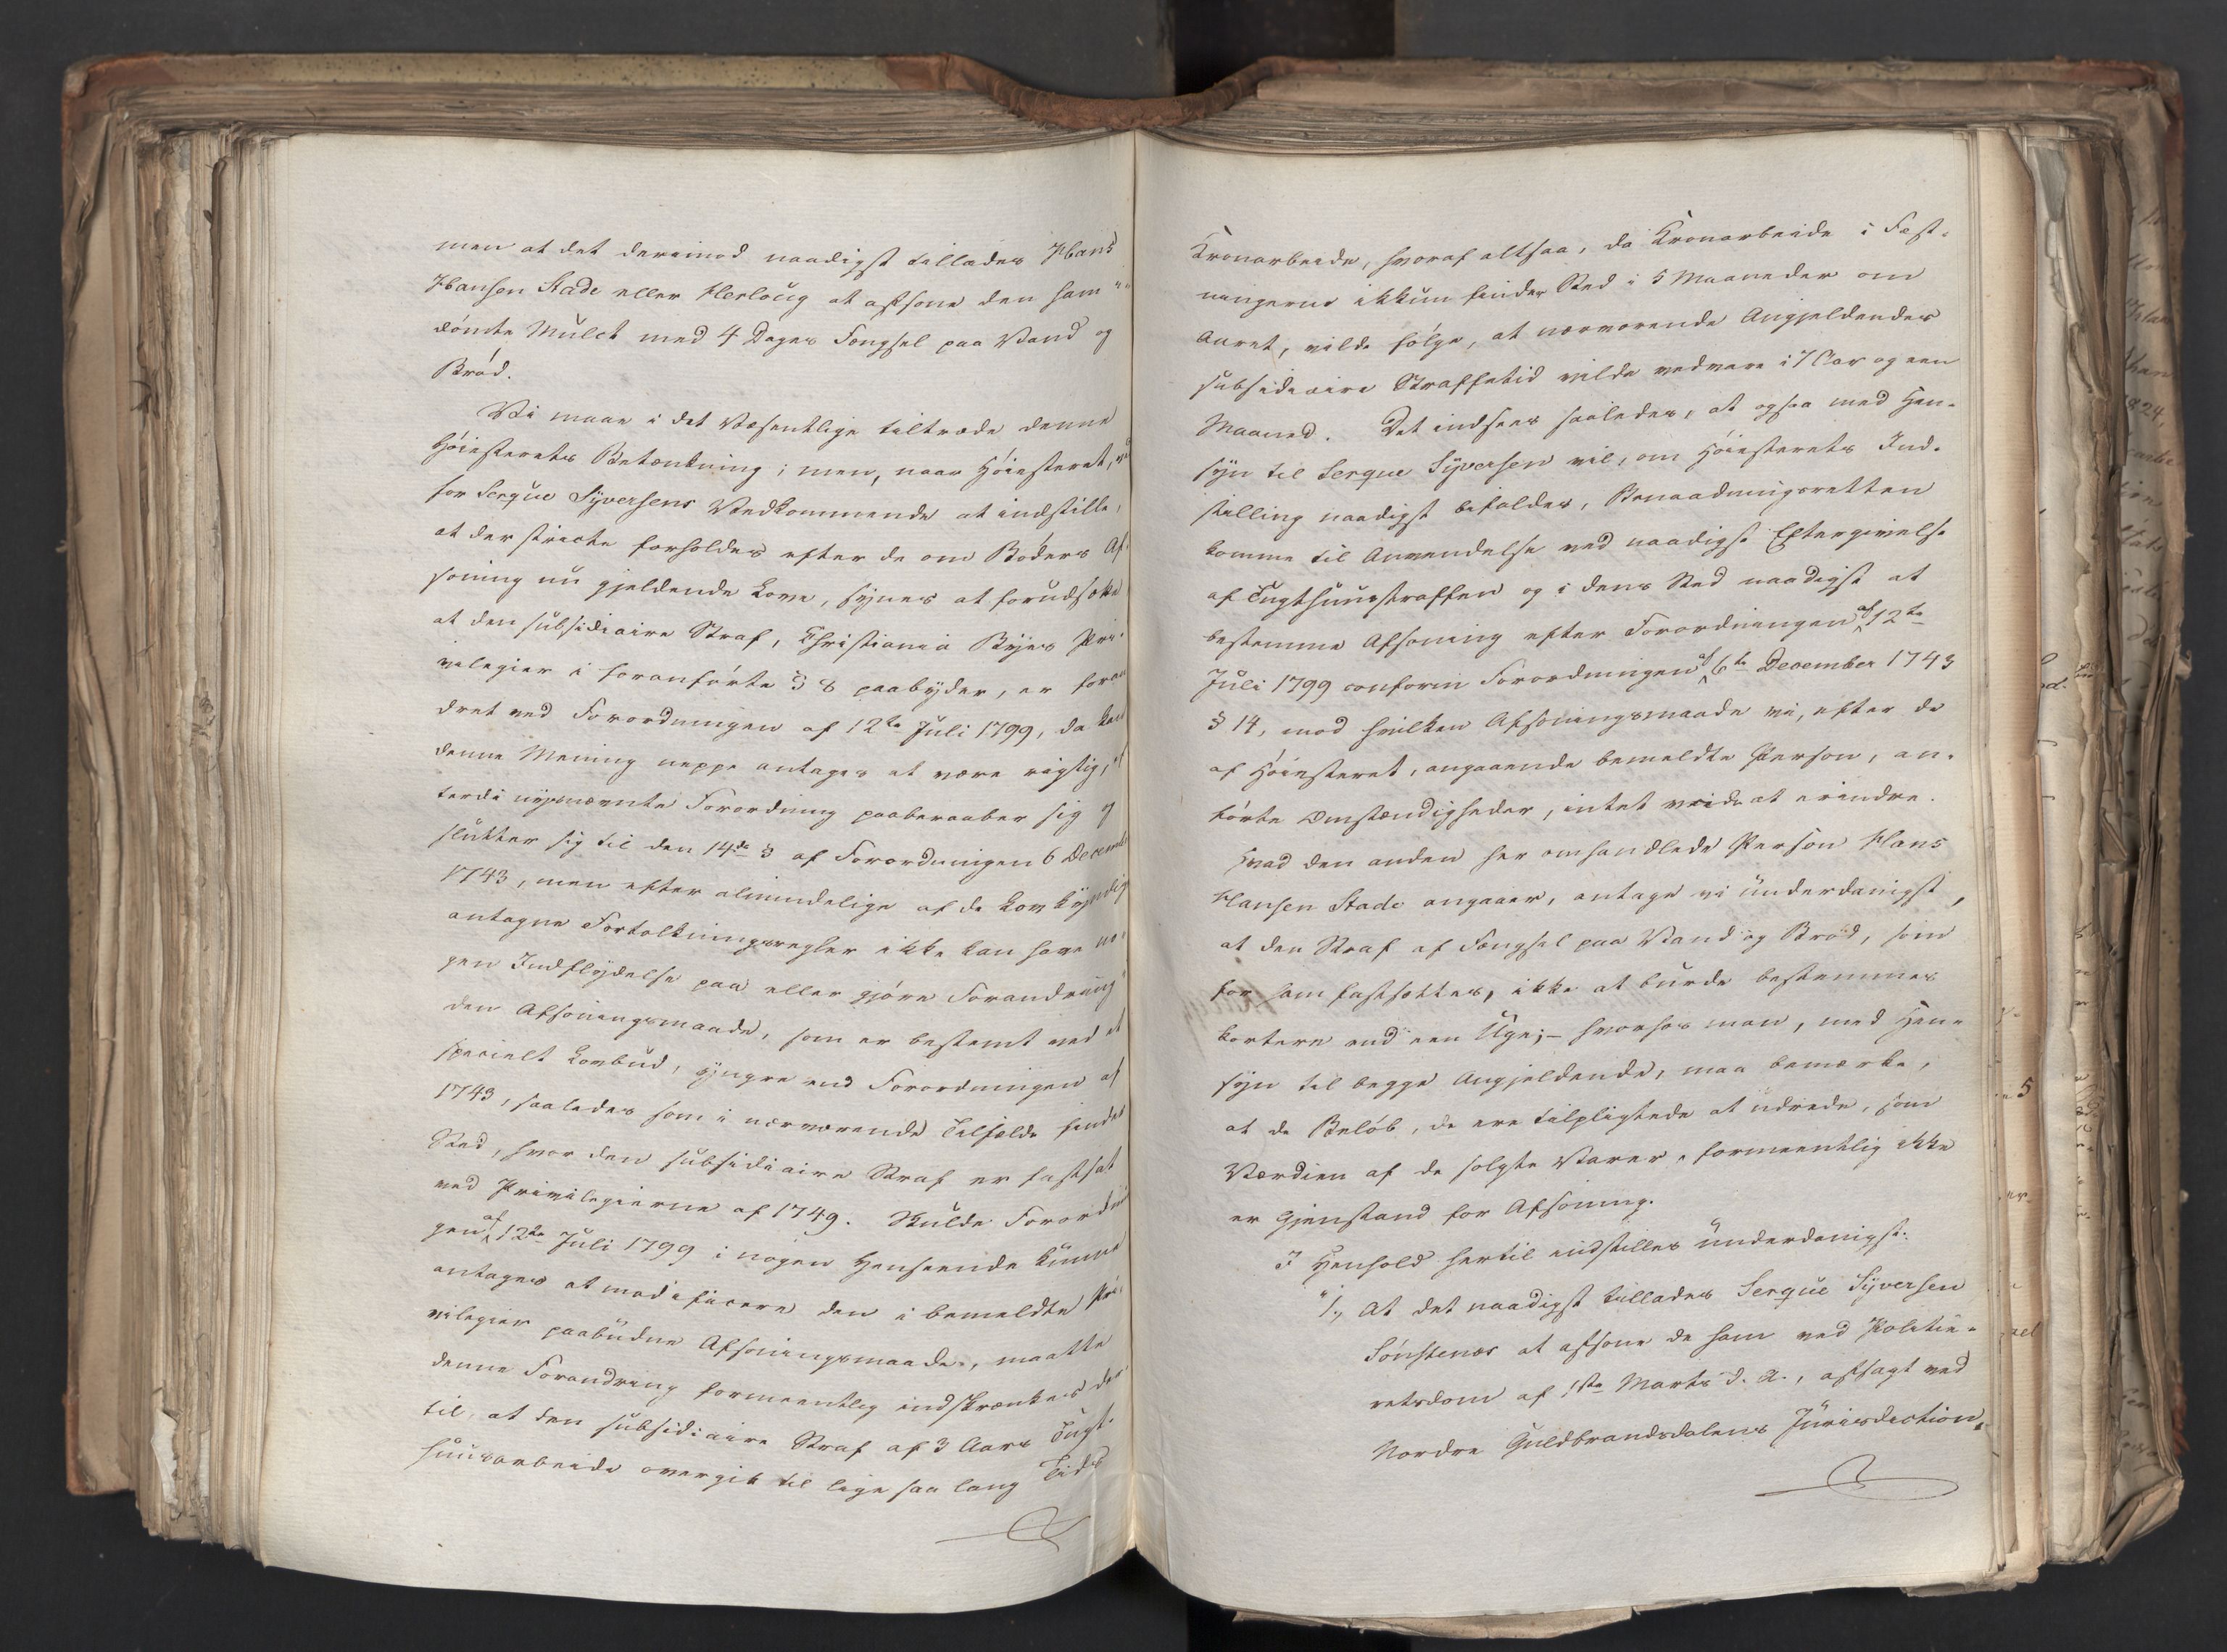 men at det derimod naadigst tillades Hans
Hansen Stade eller Herloug at afsone den ham i-
dömte Mulct med 4 Dages Fængsel paa Vand og
Bröd.
Vi maae i det Væsentlige tiltræde denne
Höiesterets Betænkning; men, naar Höiesteret, ved
for Serque Syversens Vedkommende at indstille,
at der stricte forholdes efter de om Böders Af-
soning nu gjeldende Love, synes at forudsætte
at den subsidiaire Straf, Christiania Byes Pri-
vilegier i foranförte § 8 paabyder, er foran-
dret ved Forordningen af 12te Juli 1799, da kan
denne Mening neppe antages at være rigtig, ef-
terdi nysnævnte Forordning paaberaaber sig og
slutter sig til den 14de § af Forordningen 6 Decemb
1743, men efter almindelige af de Lovkyndige
antagne Fortolkningsregler ikke kan have no-
gen Indflydelse paa eller gjöre Forandring i
den Afsoningsmaade, som er bestemt ved et
specielt Lovbud, yngre end Forordningen af
1743, saaledes som i nærværende Tilfælde finder
Sted, hvor den subsidiaire Straf er fastsat
ved Privilegierne af 1749. Skulde Forordnin-
gen af 12te Juli 1799 i nogen Henseende kunne
antages at modificere den i bemeldte Pri-
vilegier paabudne Afsoningsmaade, maatte
denne Forandring formeentlig indskrænkes der-
til, at den subsidiaire Straf af 3 Aars Tugt-
huusarbeide overgik til lige saa lang Tids
Kronarbeide, hvoraf altsaa, da Kronarbeide i Fæst-
ningerne ikkun finder Sted i 5 Maaneder om
Aaret, vilde fölge, at nærværende Angjeldendes
subsidiaire Straffetid vilde vedvare i 7 Aar og een
Maaned. Det indsees saaledes, at ogsaa med Hen-
syn til Serque Syversen vil, om Höiesterets Ind-
stilling naadigst bifaldes, Benaadningsretten
komme til Anvendelse ved naadigst Eftergivelse
af Tugthuusstraffen og i dens Sted naadigst at
bestemme Afsoning efter Forordningen af 12te
Juli 1799 conform Forordningen af 6te December 1743
§ 14, mod hvilken Afsoningsmaade vi, efter de
af Höiesteret, angaaende bemeldte Person, an-
förte Omstændigheder, intet vide at erindre.
Hvad den anden her omhandlede Person Hans
Hansen Stade angaaer, antage vi underdanigst,
at den Straf af Fængsel paa Vand og Bröd, som
for ham fastsættes, ikke at burde bestemmes
kortere end een Uge; – hvorhos man, med Hen-
syn til begge Angjeldende, maa bemærke,
at de Belöb, de ere tilpligtede at udrede, som
Værdien af de solgte Varer, formeentlig ikke
er Gjenstand for Afsoning.
I Henhold hertil indstilles underdanigst:
"1, At det naadigst tillades Serque Syversen
Sönstenæs at afsone de ham ved Politie-
retsdom af 1ste Marts d. A., afsagt ved
Nordre Guldbrandsdalens Jurisdiction,